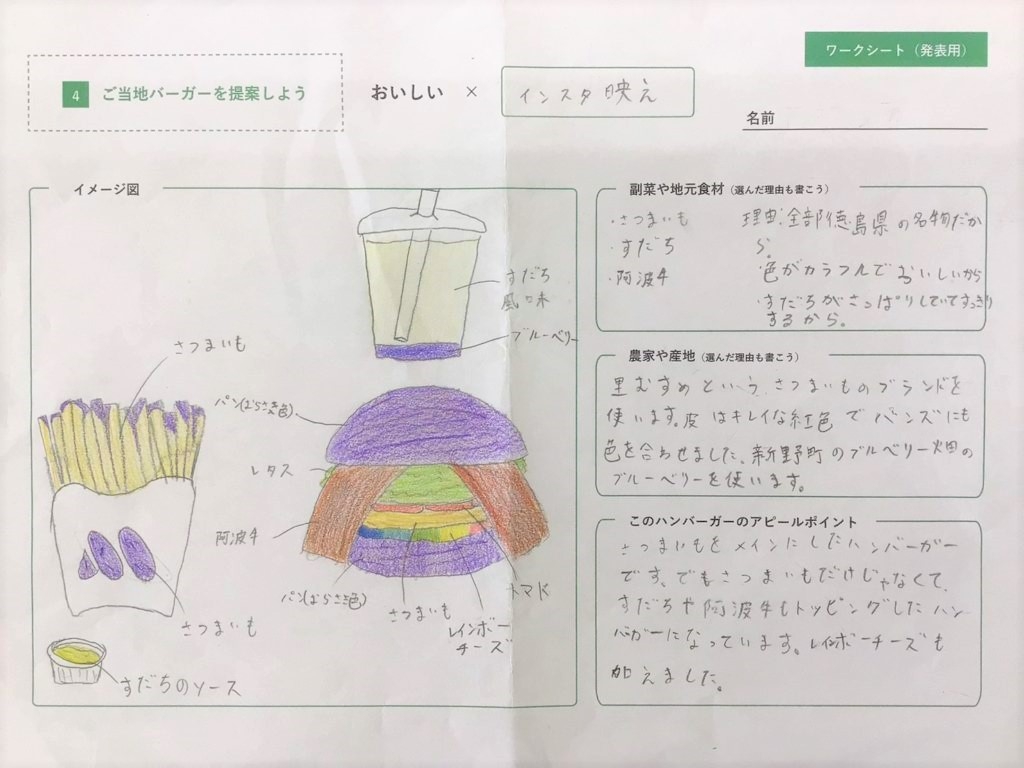 ワークシート（発表用）
4 ご当地バーガーを提案しよう
おいしい × インスタ映え
名前
イメージ図
すだち
風味
ブルーベリー
さつまいも
パン(むらさき色)
レタス
阿波牛
パン(むらさき色)
さつまいも
レインボー
チーズ
トマト
さつまいも
すだちのソース
副菜や地元食材（選んだ理由も書こう）
・さつまいも
・すだち
・阿波牛
理由:全部徳島県の名物だか
ら。
・色がカラフルでおいしいから
・すだちがさっぱりしていてすっきり
するから。
農家や産地（選んだ理由も書こう）
里むすめという、さつまいものブランドを
使います。皮はキレイな紅色でバンズにも
色を合わせました。新野町のブルベリー畑の
ブルーベリーを使います。
このハンバーガーのアピールポイント
さつまいもをメインにしたハンバーガー
です。でもさつまいもだけじゃなくて、
すだちや阿波牛もトッピングしたハン
バガーになっています。レインボーチーズも
加えました。